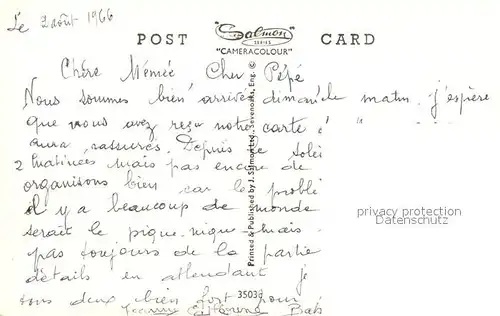 Le 2 août 1966
POST Salmon SERIES CARD
"CAMERACOLOUR"
Chère Mémée Cher Pépé
Nous sommes bien arrivés dimanche matin. j'espère
que vous avez reçu notre carte
aura rassurés. Depuis le soleil
2 matinées mais pas encore de
organisons bien car le problè
il y a beaucoup de monde
serait le pique-nique mais
pas toujours de la partie
détails en attendant je
tous deux bien fort pour
Printed & Published by J. Salmon Ltd., Sevenoaks, Eng. ©
privacy protection
Datenschutz